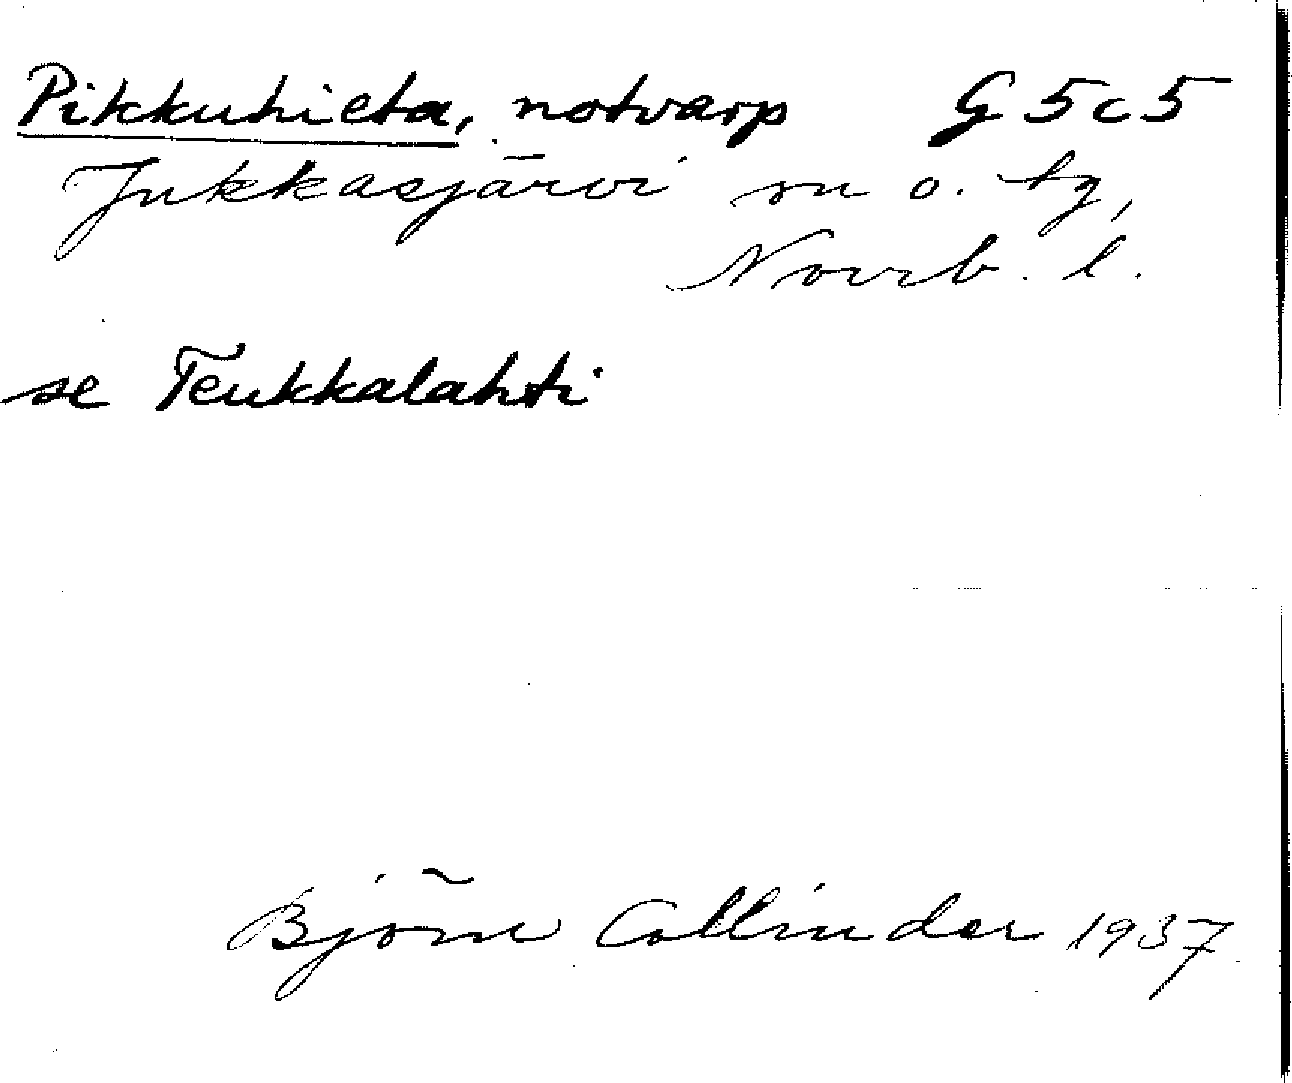 Pikkuhieta, notvarp G 5 c 5
Jukkasjärvi sn o. tg,
Norrb. l.
se Teukkalahti
Björn Collinder 1937